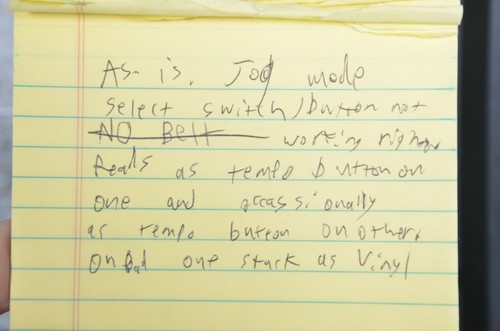 As-is. Jog mode
select switch/button not
NO Belt working right
Reads as tempo button on
one and occassionally
as tempo button on other.
on Bad one stuck as Vinyl